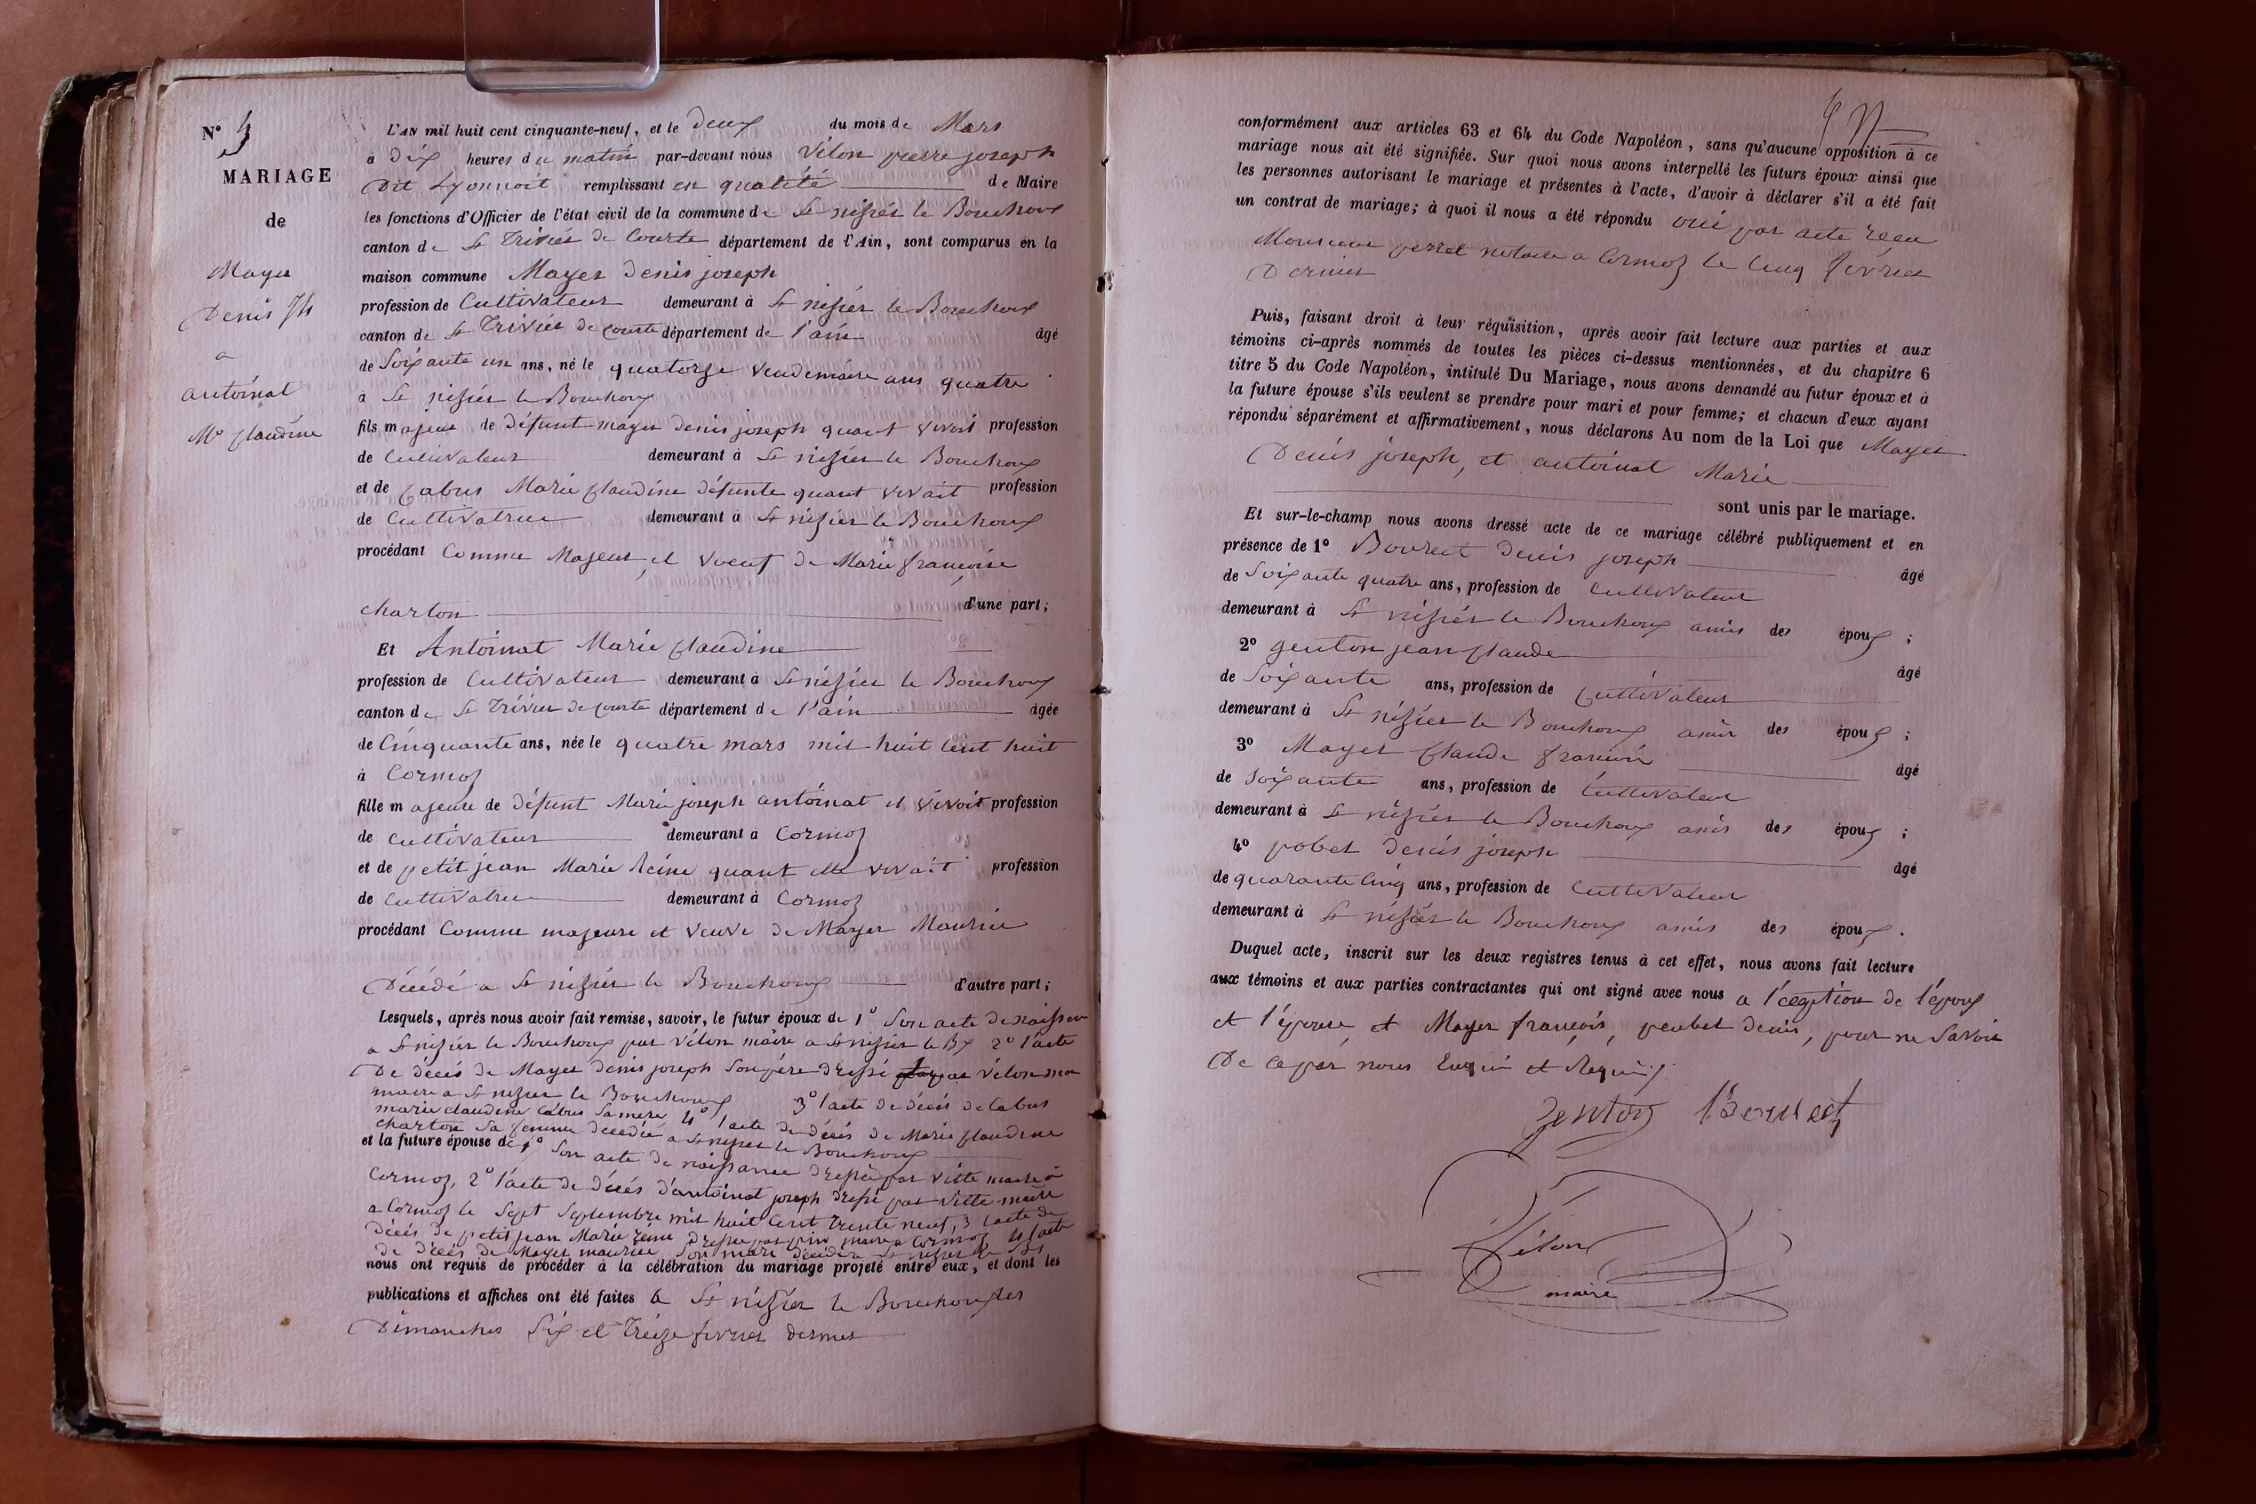 N° 3
MARIAGE
de
Mayer
Denis Jh
a
antoinat
Me Claudine
L'AN mil huit cent cinquante-neuf, et le deux du mois de Mars
à dix heures du matin par-devant nous Vélon pierre joseph
Dit Lyonnoit remplissant en qualité de Maire
les fonctions d'Officier de l'état civil de la commune de St nisier le Bouchoux
canton de St Triviés de Courte département de l'Ain, sont comparus en la
maison commune Mayer Denis joseph
profession de Cultivateur demeurant à St nisier le Bouchoux
canton de St Triviés de Courte département de l'ain âgé
de Soixante un ans, né le quatorze vendemiaire ans quatre
à St nisier le Bouchoux
fils majeur de Défunt mayer denis joseph quant vivoit profession
de Cultivateur demeurant à St nisier le Bouchoux
et de Cabus Marie Claudine défunte quant vivait profession
de Cultivatrice demeurant à St nisier le Bouchoux
procédant Comme Majeur, et voeuf de Marie françoise
charton d'une part;
Et Antoinat Marie Claudine
profession de Cultivateur demeurant à St nisier le Bouchoux
canton de St Trivier de Courte département de l'ain âgée
de Cinquante ans, née le quatre mars mil huit cent huit
à Cormoz
fille majeure de défunt Marie joseph antoinat et vivoit profession
de cultivateur demeurant à Cormoz
et de petit jean Marie Reine quant elle vivait profession
de Cultivatrice demeurant à Cormoz
procédant Comme majeure et veuve de Mayer Maurice
Décédé a St nisier le Bouchoux d'autre part;
Lesquels, après nous avoir fait remise, savoir, le futur époux de 1° Son acte de naissance
a St nisier le Bouchoux par Vélon maire a St nisier le Bx 2° l'acte
De décés de Mayer denis joseph Son père dressé par Vélon
maire a St nisier le Bouchoux 3° l'acte de décés de Cabus
marie claudine Cabus Sa mere 4° l'acte de décés de Marie Claudine
charton Sa femme decedée a St nisier le Bouchoux
et la future épouse de 1° Son acte de naissance dressé par Vitte maire à
Cormoz, 2° l'acte de décés d'antoinat joseph dressé par Vitte maire
a Cormoz le Sept Septembre mil huit Cent Trente neuf, 3 l'acte de
décés de petit jean Marie reine dressé par maire a Cormoz 4 l'acte
de décés de Mayer maurice Son mari décédé a St nisier le Bx
nous ont requis de procéder à la célébration du mariage projeté entre eux, et dont les
publications et affiches ont été faites à St nisier le Bouchoux les
Dimanches Six et Treize fevrier dernier
conformément aux articles 63 et 64 du Code Napoléon, sans qu'aucune opposition à ce
mariage nous ait été signifiée. Sur quoi nous avons interpellé les futurs époux ainsi que
les personnes autorisant le mariage et présentes à l'acte, d'avoir à déclarer s'il a été fait
un contrat de mariage; à quoi il nous a été répondu oui par acte reçu
Monsieur perret notaire a Cormoz le Cinq fevrier
Dernier
Puis, faisant droit à leur réquisition, après avoir fait lecture aux parties et aux
témoins ci-après nommés de toutes les pièces ci-dessus mentionnées, et du chapitre 6
titre 5 du Code Napoléon, intitulé Du Mariage, nous avons demandé au futur époux et à
la future épouse s'ils veulent se prendre pour mari et pour femme; et chacun d'eux ayant
répondu séparément et affirmativement, nous déclarons Au nom de la Loi que Mayer
Denis joseph, et antoinat Marie
sont unis par le mariage.
Et sur-le-champ nous avons dressé acte de ce mariage célébré publiquement et en
présence de 1° Bouret Denis joseph âgé
de Soixante quatre ans, profession de Cultivateur
demeurant à St nisier le Bouchoux amis des époux;
2° genton jean Claude âgé
de Soixante ans, profession de Cultivateur
demeurant à St nisier le Bouchoux amis des époux;
3° Mayer Claude françois âgé
de Soixante ans, profession de Cultivateur
demeurant à St nisier le Bouchoux amis des époux;
4° pobet denis joseph âgé
de quarante Cinq ans, profession de Cultivateur
demeurant à St nisier le Bouchoux amis des époux.
Duquel acte, inscrit sur les deux registres tenus à cet effet, nous avons fait lecture
aux témoins et aux parties contractantes qui ont signé avec nous a l'éxeption de l'époux
et l'épouse, et Mayer françois, peubet denis, pour ne Savoir
De ce par nous Enquis et Requis
genton Bouret
Vélon
maire